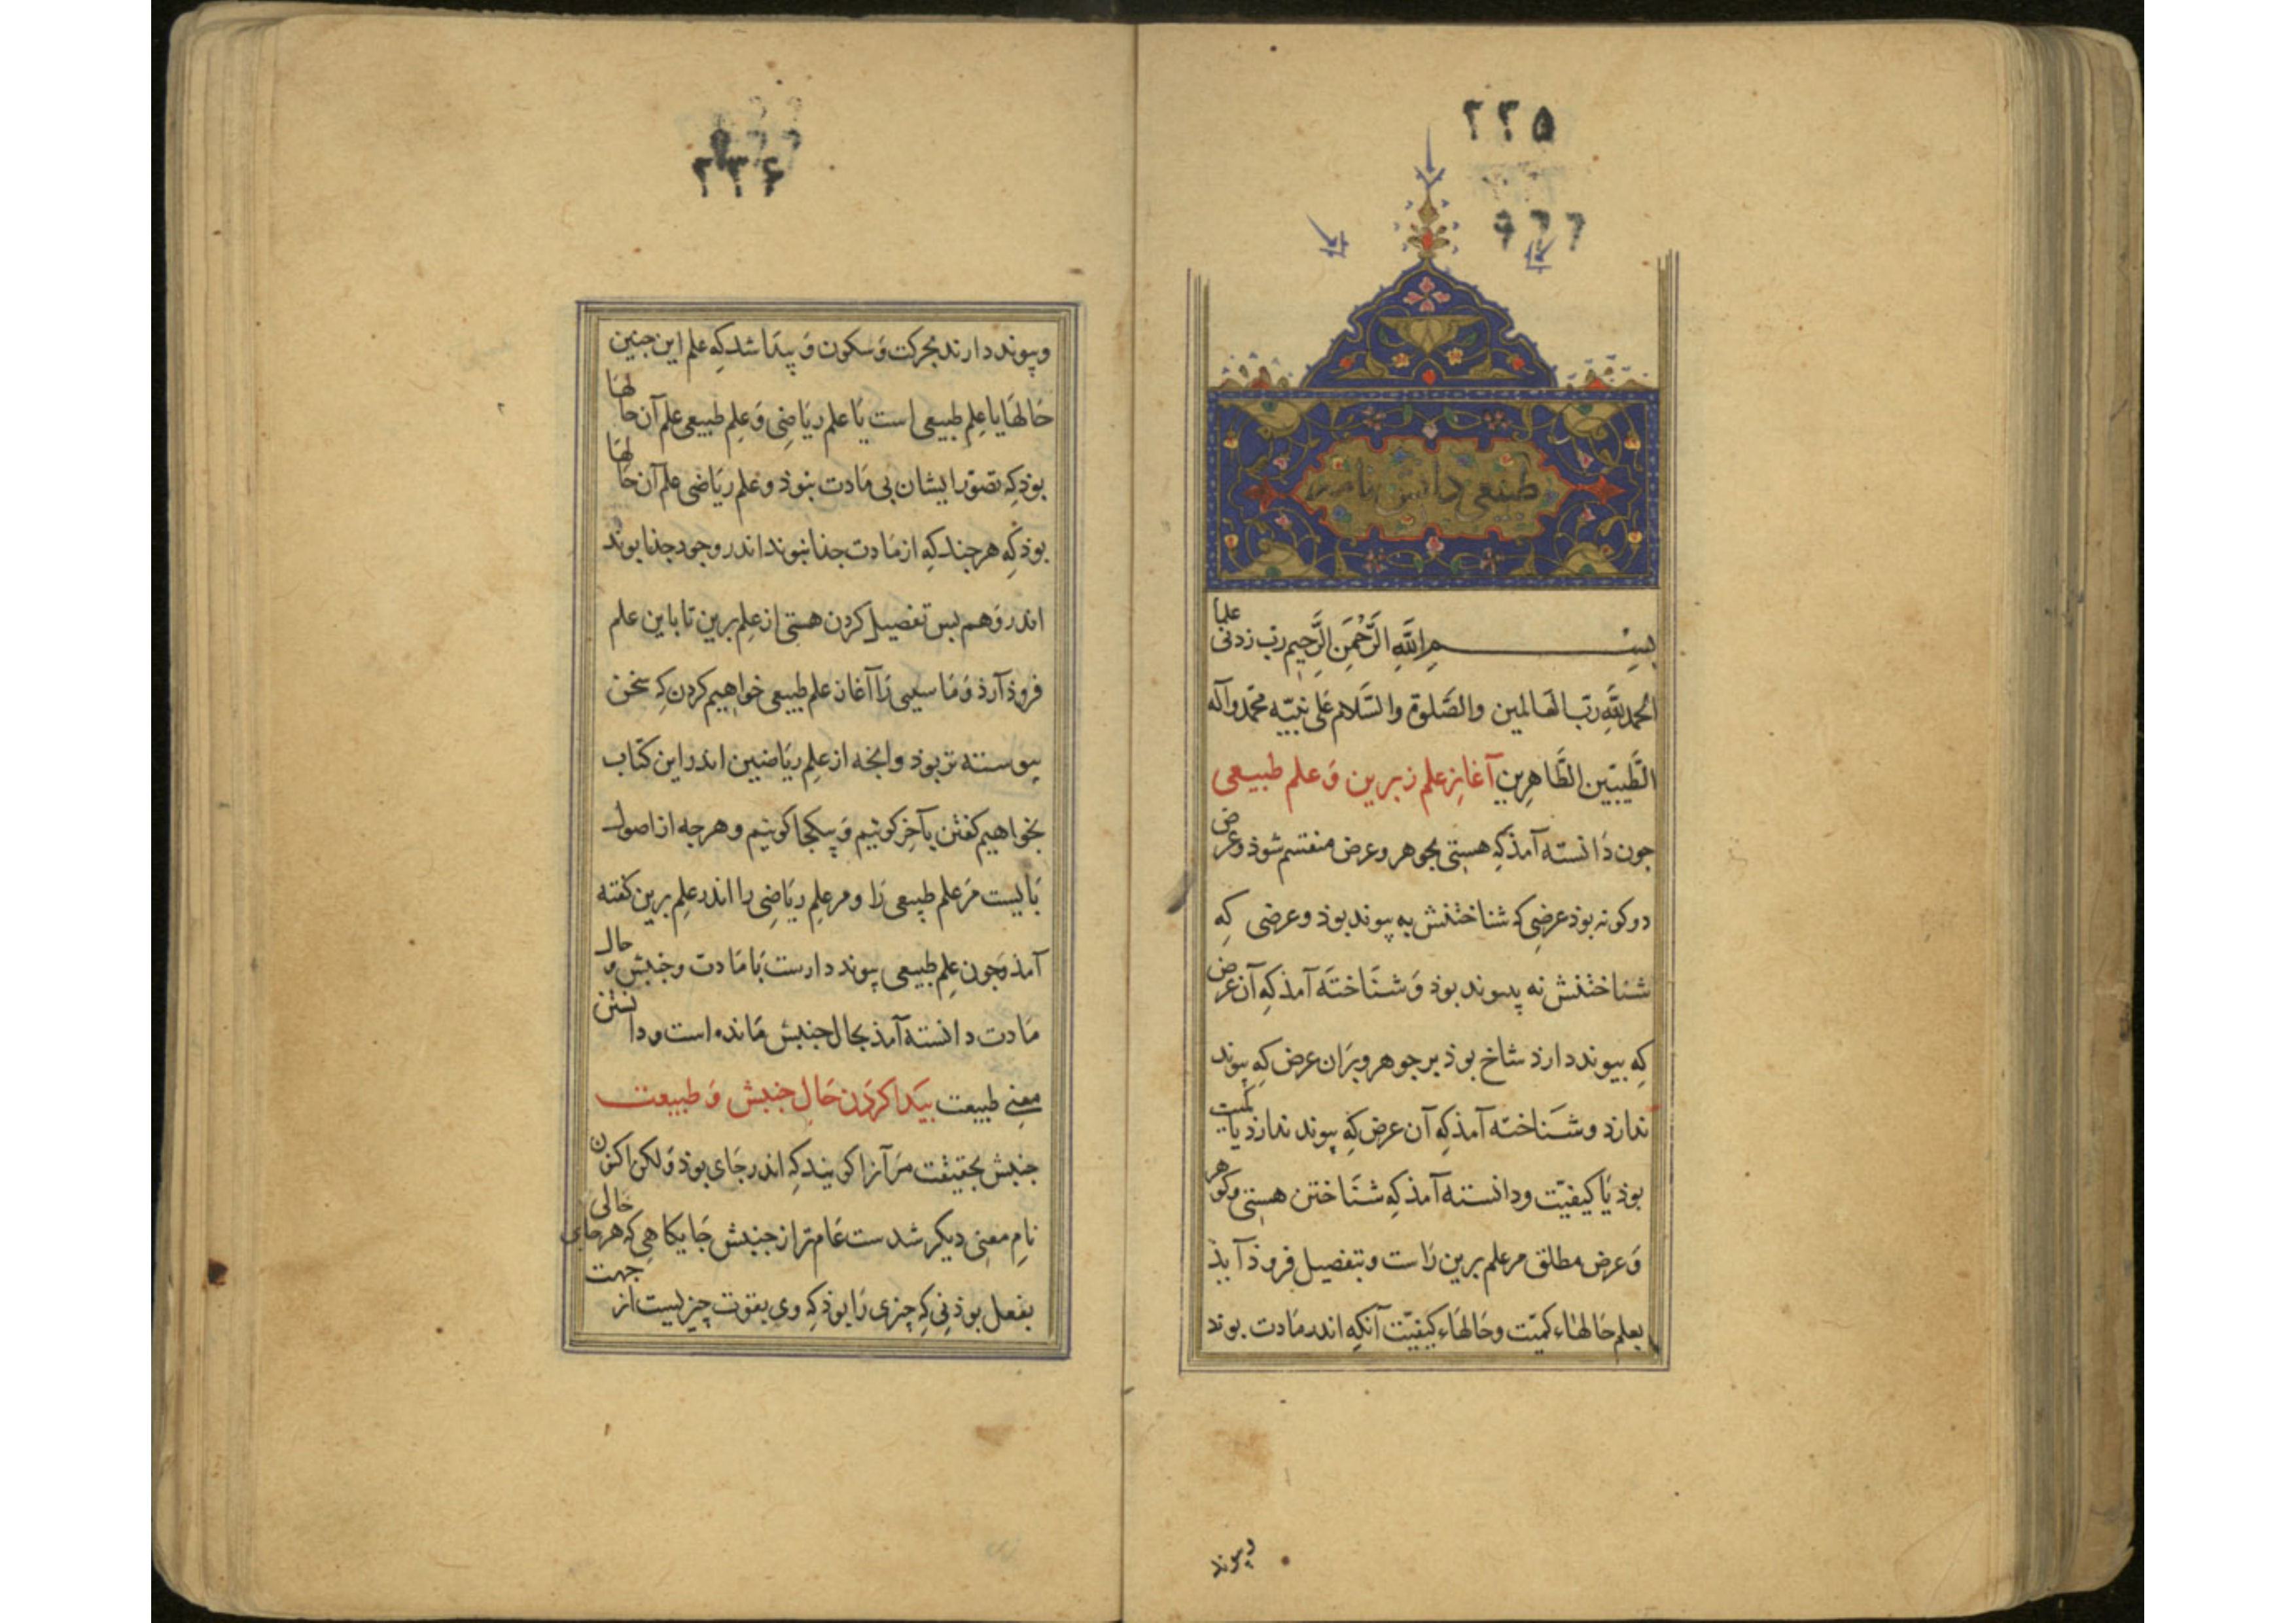 ۲۲۵
طبیعی دانش نامه
بسم الله الرَّحْمَنِ الرَّحِیم رب زدنی علماً
الحمد لله رب العالمین والصَّلوة والسَّلام عَلی نبیّه محمّد وآله
الطَّیّبین الطَّاهِرین آغازِ علم زبرین وَ علم طبیعی
جون دَانسته آمذ کِه هستی بجوهر وعرض منقسم شوذ وعرض
دو کونه بوذ عرضِی که شناختنش به پیوند بوذ وعرضی کِه
شناختنش نه پیوند بوذ وَ شنَاختَه آمذ کِه آن عرض
کِه پیوند دارذ شاخ بوذ بر جوهر وبرَان عرض کِه پیوند
ندارذ وشَنَاخته آمذ کِه آن عرض کِه پیوند ندارذ یا کمیت
بوذ یَا کیفیّت ودانسته آمذ کِه شنَاختن هستِی وکوهر
وَ عرض مطلق مر علم برین رَاست وبتفصیل فروذ آیذ
بعلم حَالهَاء کمیّت وحَالهَاء کیفیّت آنکِه اندر مَادت بوند
وپیوند
۲۲۶
وپیوند دارند بحرکت وَ سکون وَ پیدَا شد کِه علم این جنین
حَالهَا یا عِلم طبیعی است یَا علم ریَاضِی وَ عِلم طبیعی علم آن حالهَا
بوذ کِه تصوّر ایشان بی مَادت نبوذ وعلم ریَاضی علم آن حَالهَا
بوذ کِه هر جند کِه از مَادت جذا نبوند اندر وجود جذا بوند
اندر وَهم بس تفصیل کردن هستی از عِلم برین تا باین علم
فروذ آرذ وَ مَا سپسی رَا آغاز علم طبیعی خواهیم کردن کِه سخن
پیوسته تر بوذ وانجه از عِلم ریَاضیین اندر این کتاب
بخواهیم کفتن بآخِر کوئیم وَ بیکجا کوئیم وهر جه از اصول
بَایست مَر علم طبیعی رَا ومر عِلم ریَاضِی را اندر عِلم برین کفته
آمذ وَجون عِلم طبیعی پیوند دارست بَا مَادت وجنبش وحال
مَادت دانسته آمذ بحال جنبش مَانده است ودانستن
معنِی طبیعت پیَدا کرَدن حَالِ جنبش وَ طبیعت
جنبش بحقیقت مرَ آنرا کویند کِه اندر جَای بوذ وَلکن اکنون
نام معنِی دیکر شدست عَام تر از جنبش جَایکاهِی کِه هر حَالی
بفعل بوذنِی کِه چیزی رَا بوذ کِه وی بقوت چیزیست از جهت